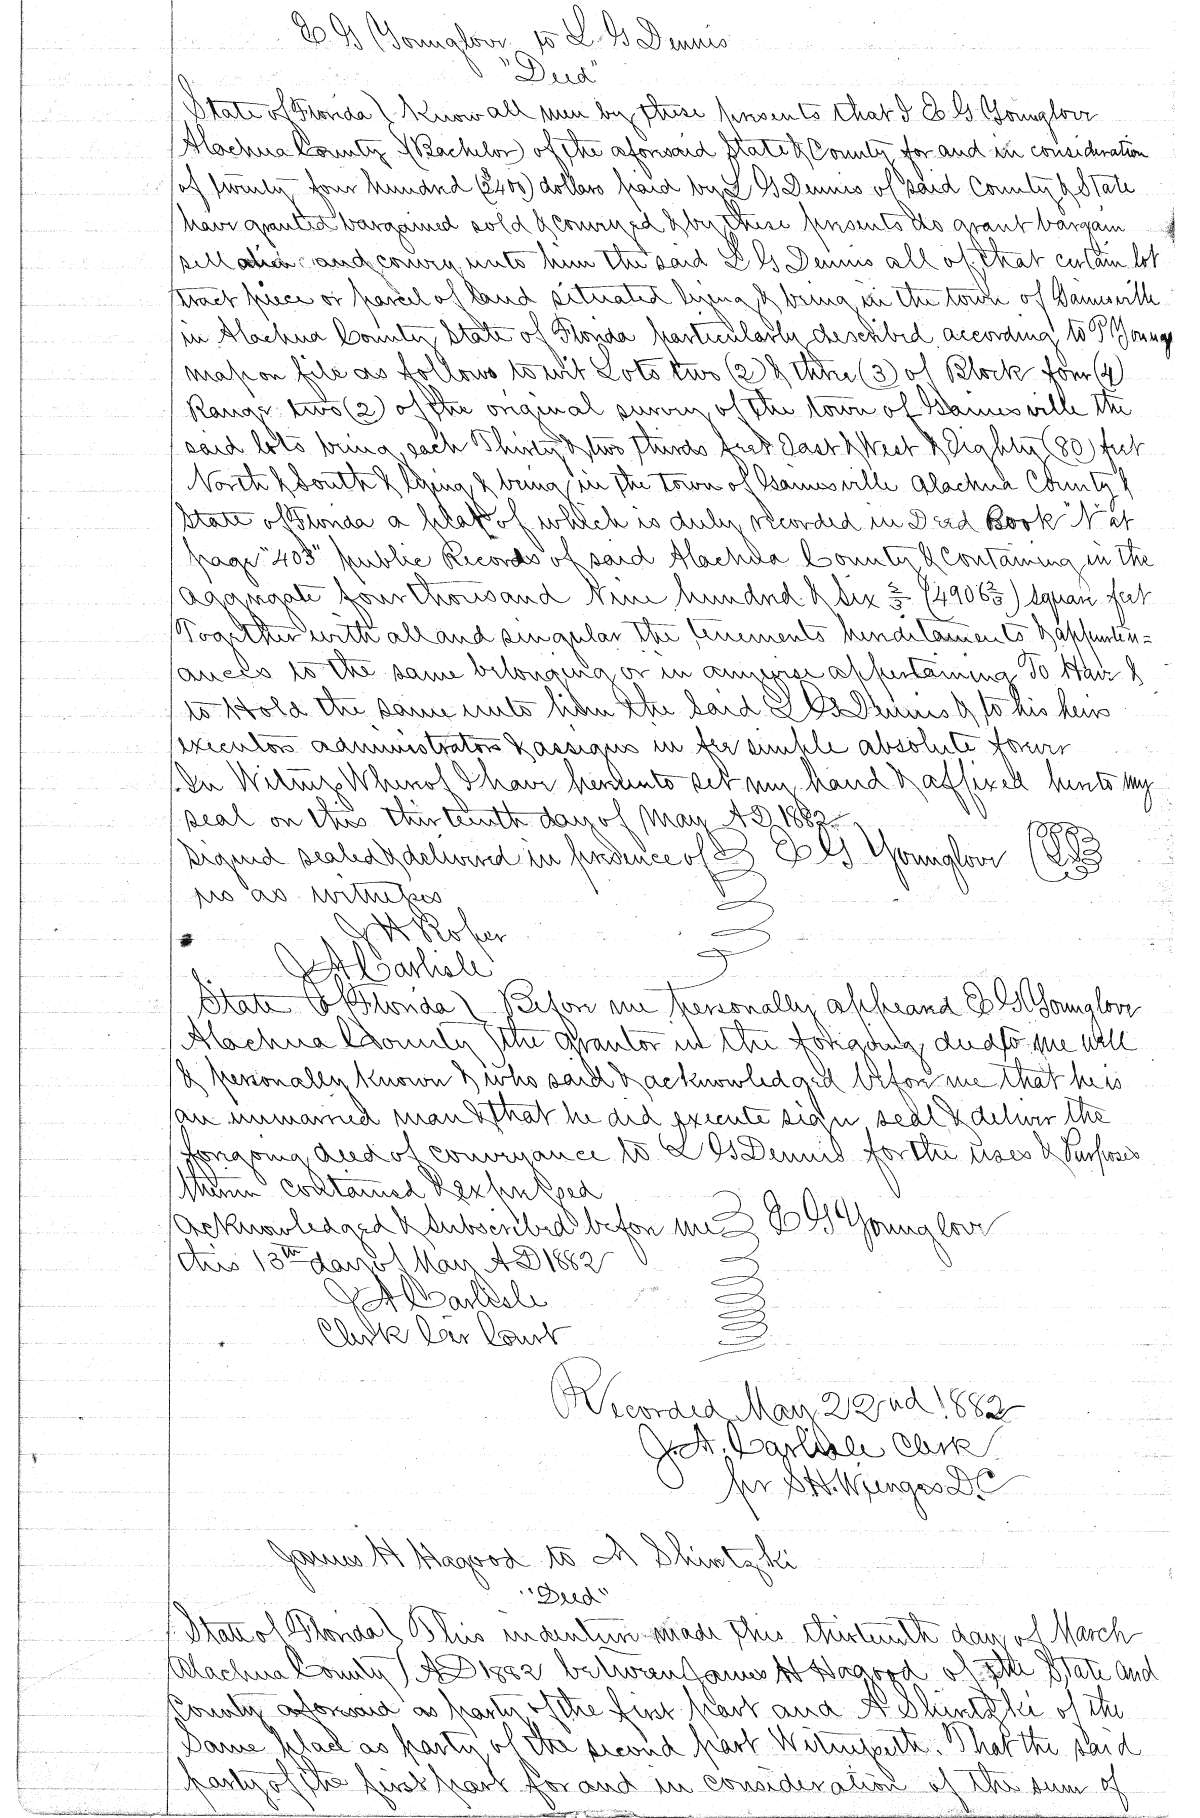 E G Younglove to L G Dennis
"Deed"
State of Florida } Know all men by these presents that I E G Younglove
Alachua County } (Bachelor) of the aforesaid State & County for and in consideration
of twenty four hundred ($2400) dollars paid by L G Dennis of said County & State
have granted bargained sold & conveyed & by these presents do grant bargain
sell alien and convey unto him the said L G Dennis all of that certain lot
tract piece or parcel of land situated lying & being in the town of Gainesville
in Alachua County State of Florida particularly described according to P Youngs
map on file as follows to wit Lots two (2) & three (3) of Block four (4)
Range two (2) of the original survey of the town of Gainesville the
said lots being each Thirty & two thirds feet East & West & Eighty (80) feet
North & South & lying & being in the town of Gainesville Alachua County &
State of Florida a plat of which is duly recorded in Deed Book "N" at
page "403" public Records of said Alachua County & Containing in the
Aggregate four thousand Nine hundred & six 2/3 (4906 2/3) square feet
Together with all and singular the tenements hereditaments & appurten=
ances to the same belonging or in anywise appertaining To Have &
to Hold the same unto him the said L G Dennis & to his heirs
executors administrators & assigns in fee simple absolute forever
In Witness Whereof I have hereunto set my hand & affixed hereto my
seal on this thirteenth day of May A D 1882
Signed sealed & delivered in presence of } E G Younglove
us as witnesses
J H Roper
J A Carlisle
State of Florida } Before me personally appeared E G Younglove
Alachua County } the grantor in the foregoing deed to me well
& personally known & who said & acknowledged before me that he is
an unmarried man & that he did execute sign seal & deliver the
foregoing deed of conveyance to L G Dennis for the uses & Purposes
therein contained & expressed
Acknowledged & Subscribed before me } E G Younglove
this 13th day of May A D 1882
J A Carlisle
Clerk Cir Court
Recorded May 22nd 1882
J. A. Carlisle Clerk
per S. H. D.C
James H Hagood to A Shintzki
"Deed"
State of Florida } This indenture made this thirteenth day of March
Alachua County } A D 1882 between James H Hagood of the State and
County aforesaid as party of the first part and A Shintzki of the
Same place as party of the second part Witnesseth. That the said
party of the first part for and in consideration of the sum of